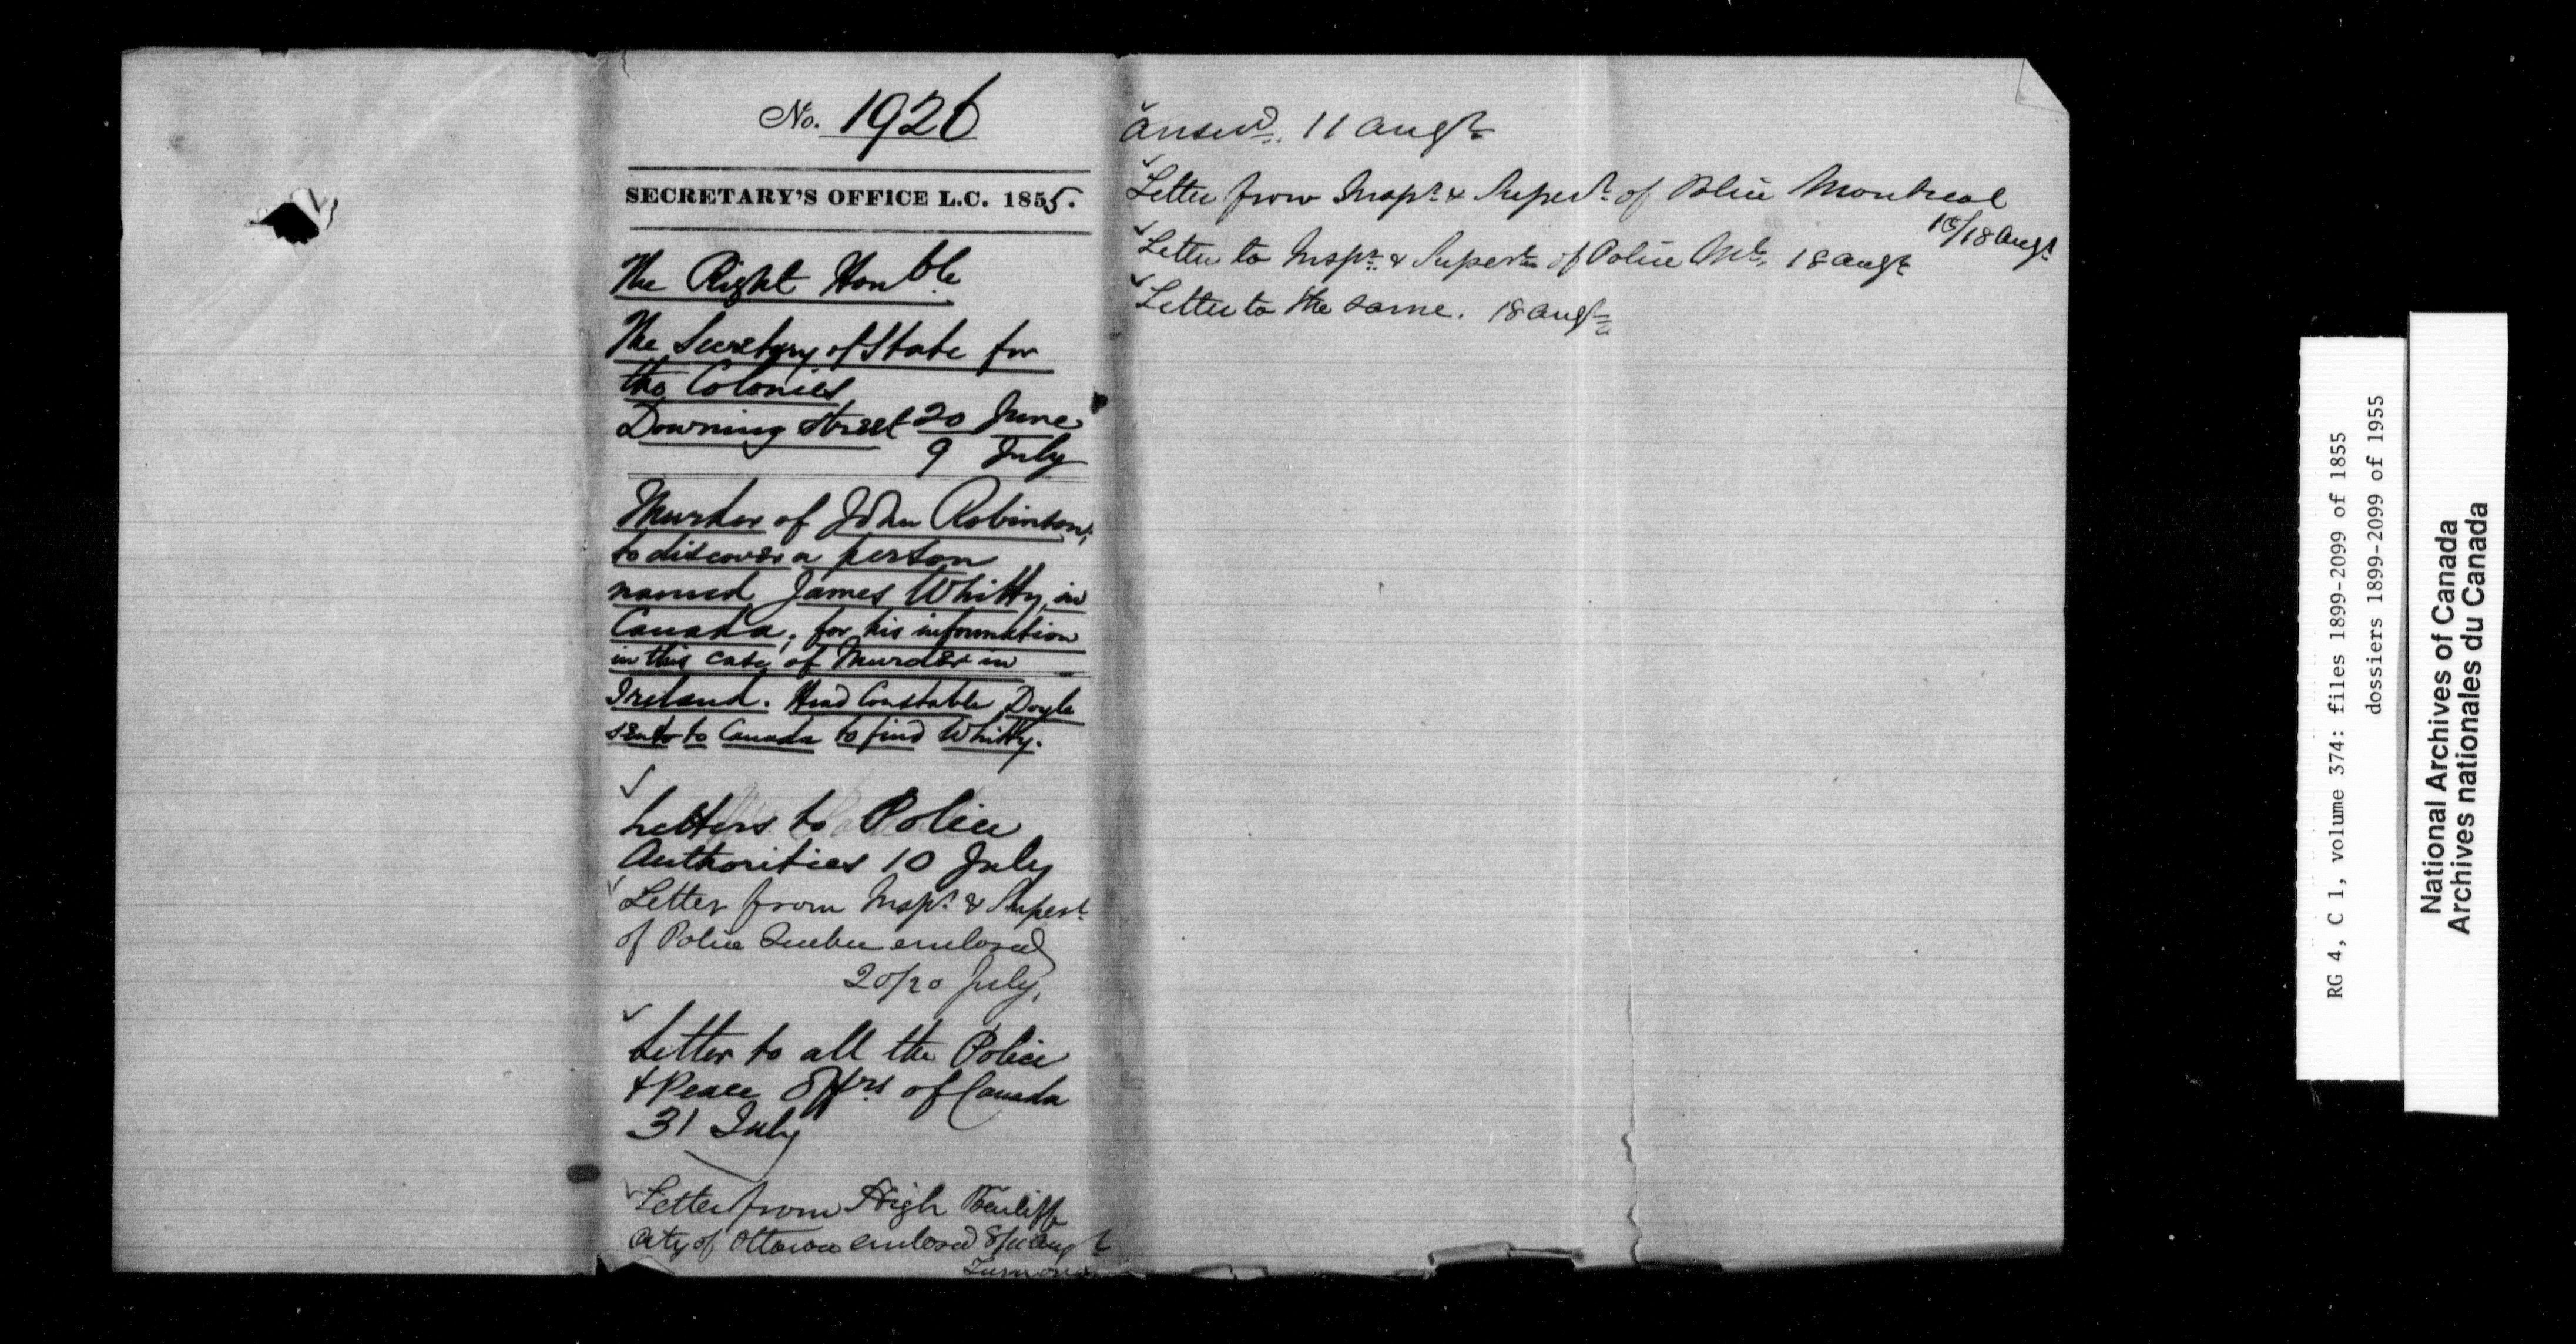 No. 1926
SECRETARY'S OFFICE L.C. 1855.
The Right Honble
The Secretary of State for
the Colonies
Downing Street 20 June
9 July
Murder of John Robinson,
to discover a person
named James Whitty, in
Canada, for his information
in this case of Murder in
Ireland. Head Constable Doyle
sent to Canada to find Whitty.
Letters to Police
Authorities 10 July
Letter from Inspr. & Supert.
of Police Quebec enclosed
20/20 July.
Letter to all the Police
& Peace Offrs of Canada
31 July
Letter from High Bailiff
City of Ottawa enclosed 8/11 Augt
Turn over
Answd. 11 Augt
Letter from Inspr. & Supert. of Police Montreal
16/18 Augt
Letter to Inspr. & Supert. of Police Mt. 18 Augt
Letter to the same. 18 Augt
RG 4, C 1, volume 374: files 1899-2099 of 1855
dossiers 1899-2099 of 1955
National Archives of Canada
Archives nationales du Canada